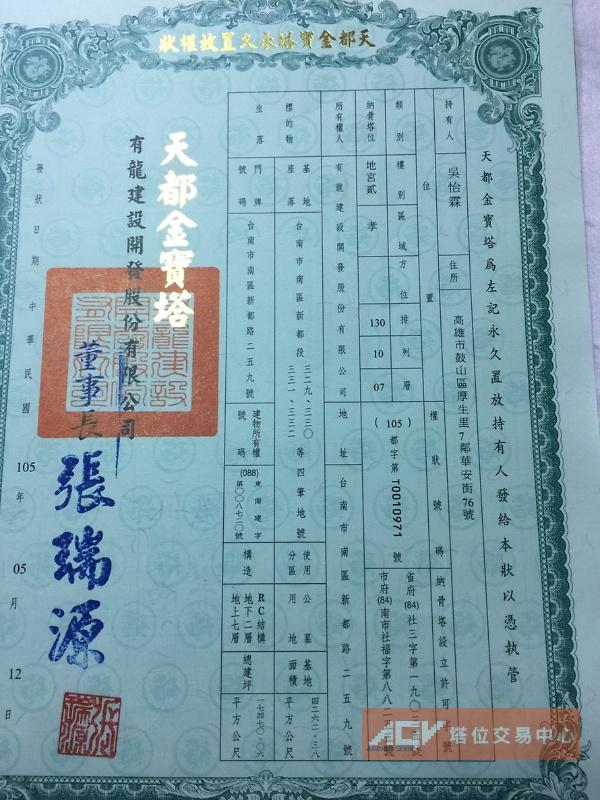 天都金寶塔永久置放權狀
天都金寶塔為左記永久置放持有人發給本狀以憑執管
持有人 吳怡霖 住所 高雄市鼓山區厚生里7鄰華安街76號
納骨塔位 位置 權狀號碼 納骨塔設立許可
類別 樓別 區域 方位 排 列 層
地宮貳 孝 130 10 07
(105) 都字第T0010971號
省府(84)社三字第一九
市府(84)南市社福字第八八二
所有權人 有龍建設開發股份有限公司 地址 台南市南區新都路二五九號
標的物 基地座落 台南市南區新都段 三二九、三三〇 三三一、三三二 等四筆地號 使用分區 公墓用地 基地面積 四二六二.三八 平方公尺
坐落 門牌號碼 台南市南區新都路二五九號 建物所有權號碼 (088)東南建字第〇〇八七二〇號 構造 RC結構 地下二層 地上七層 總建坪 一七四七〇.〇六 平方公尺
天都金寶塔
有龍建設開發股份有限公司
董事長 張瑞源
發狀日期 中華民國 105 年 05 月 12 日
ACV 塔位交易中心